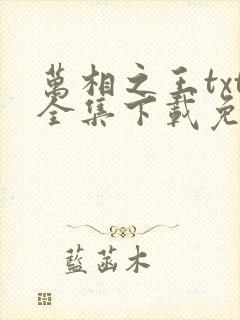 萬相之王txt
全集下載免
藍菡木